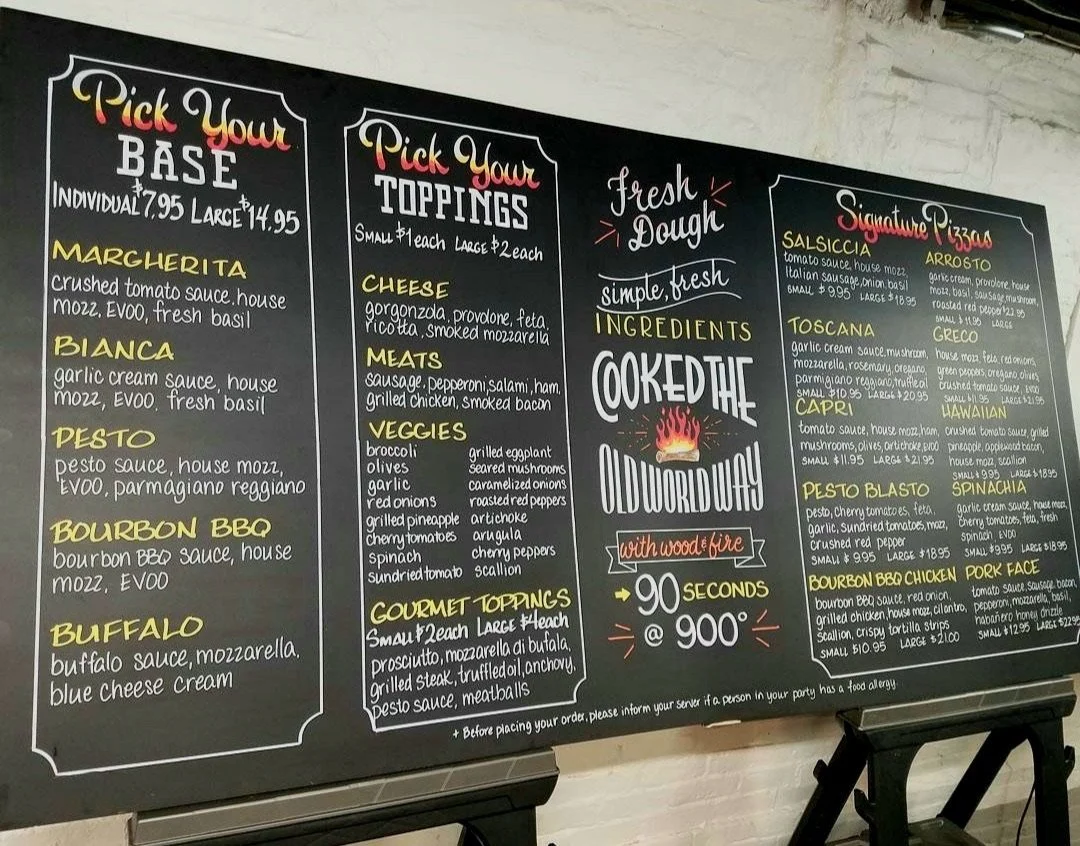 Pick Your
BASE
INDIVIDUAL $7.95 LARGE $14.95
MARGHERITA
crushed tomato sauce, house
mozz, EVOO, fresh basil
BIANCA
garlic cream sauce, house
mozz, EVOO, fresh basil
PESTO
pesto sauce, house mozz,
EVOO, parmagiano reggiano
BOURBON BBQ
bourbon BBQ sauce, house
mozz, EVOO
BUFFALO
buffalo sauce, mozzarella,
blue cheese cream
Pick Your
TOPPINGS
SMALL $1 each LARGE $2 each
CHEESE
gorgonzola, provolone, feta,
ricotta, smoked mozzarella
MEATS
sausage, pepperoni, salami, ham,
grilled chicken, smoked bacon
VEGGIES
broccoli grilled eggplant
olives seared mushrooms
garlic caramelized onions
red onions roasted red peppers
grilled pineapple artichoke
cherry tomatoes arugula
spinach cherry peppers
sundried tomato scallion
GOURMET TOPPINGS
SMALL $2 each LARGE $4 each
prosciutto, mozzarella di bufala,
grilled steak, truffled oil, anchovy,
pesto sauce, meatballs
Fresh
Dough
simple, fresh
INGREDIENTS
COOKED THE
OLD WORLD WAY
with wood & fire
90 SECONDS
@ 900°
Signature Pizzas
SALSICCIA
tomato sauce, house mozz,
Italian sausage, onion, basil
SMALL $9.95 LARGE $18.95
ARROSTO
garlic cream, provolone, house
mozz, basil, sausage, mushroom,
roasted red pepper $22.95
SMALL $11.95 LARGE
TOSCANA
garlic cream sauce, mushroom,
mozzarella, rosemary, oregano,
parmigiano reggiano, truffle oil
SMALL $10.95 LARGE $20.95
GRECO
house mozz, feta, red onions,
green peppers, oregano, olives
crushed tomato sauce, EVOO
SMALL $11.95 LARGE $21.95
CAPRI
tomato sauce, house mozz, ham,
mushrooms, olives, artichoke, EVOO
SMALL $11.95 LARGE $21.95
HAWAIIAN
crushed tomato sauce, grilled
pineapple, applewood bacon,
house mozz, scallion
SMALL $9.95 LARGE $18.95
PESTO BLASTO
pesto, cherry tomatoes, feta,
garlic, sundried tomatoes, mozz,
crushed red pepper
SMALL $9.95 LARGE $18.95
SPINACHIA
garlic cream sauce, house mozz,
cherry tomatoes, feta, fresh
spinach, EVOO
SMALL $9.95 LARGE $18.95
BOURBON BBQ CHICKEN
bourbon BBQ sauce, red onion,
grilled chicken, house mozz, cilantro,
scallion, crispy tortilla strips
SMALL $10.95 LARGE $21.00
PORK FACE
tomato sauce, sausage, bacon,
pepperoni, mozzarella, basil,
habañero honey drizzle
SMALL $12.95 LARGE $22.95
+ Before placing your order, please inform your server if a person in your party has a food allergy.